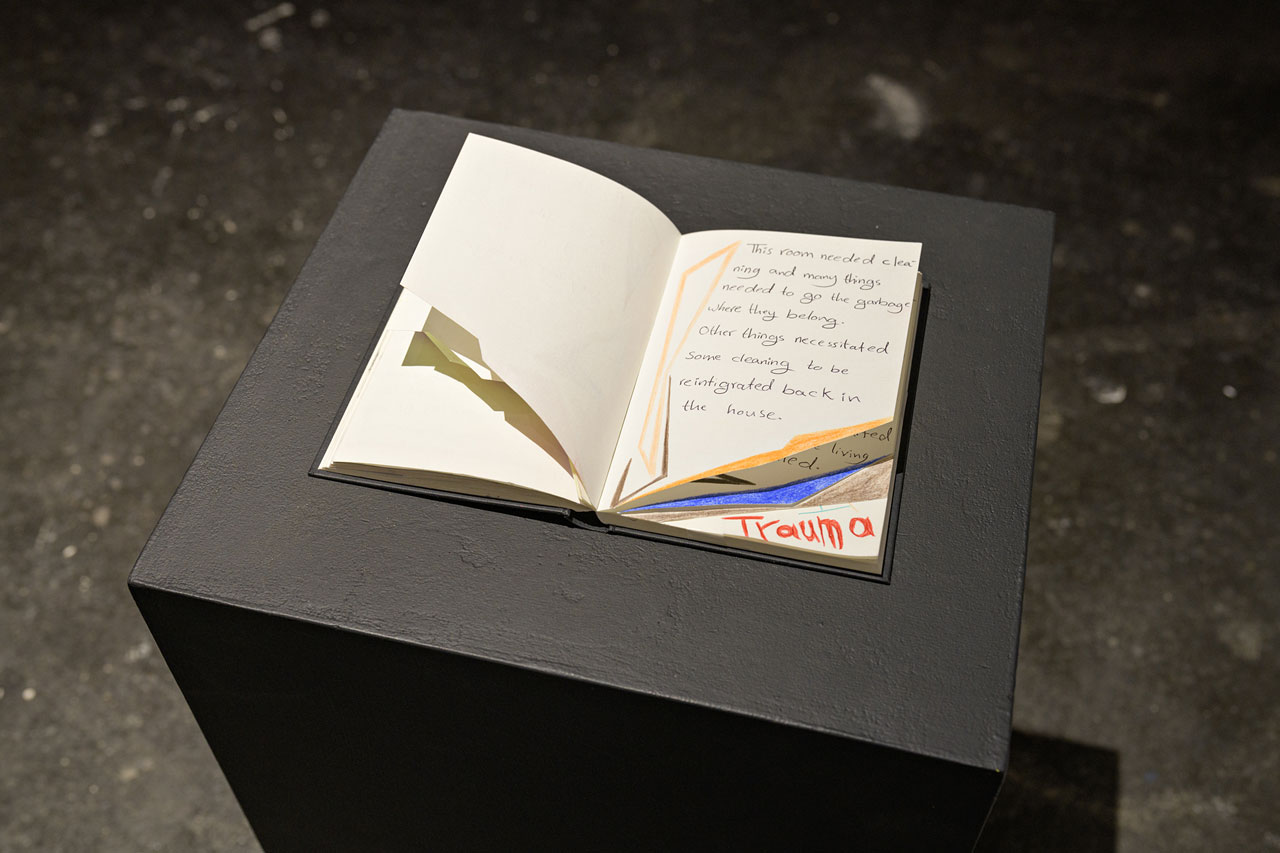 This room needed clea-
ning and many things
needed to go the garbage
where they belong.
Other things necessitated
some cleaning to be
reintigrated back in
the house.
living
Trauma